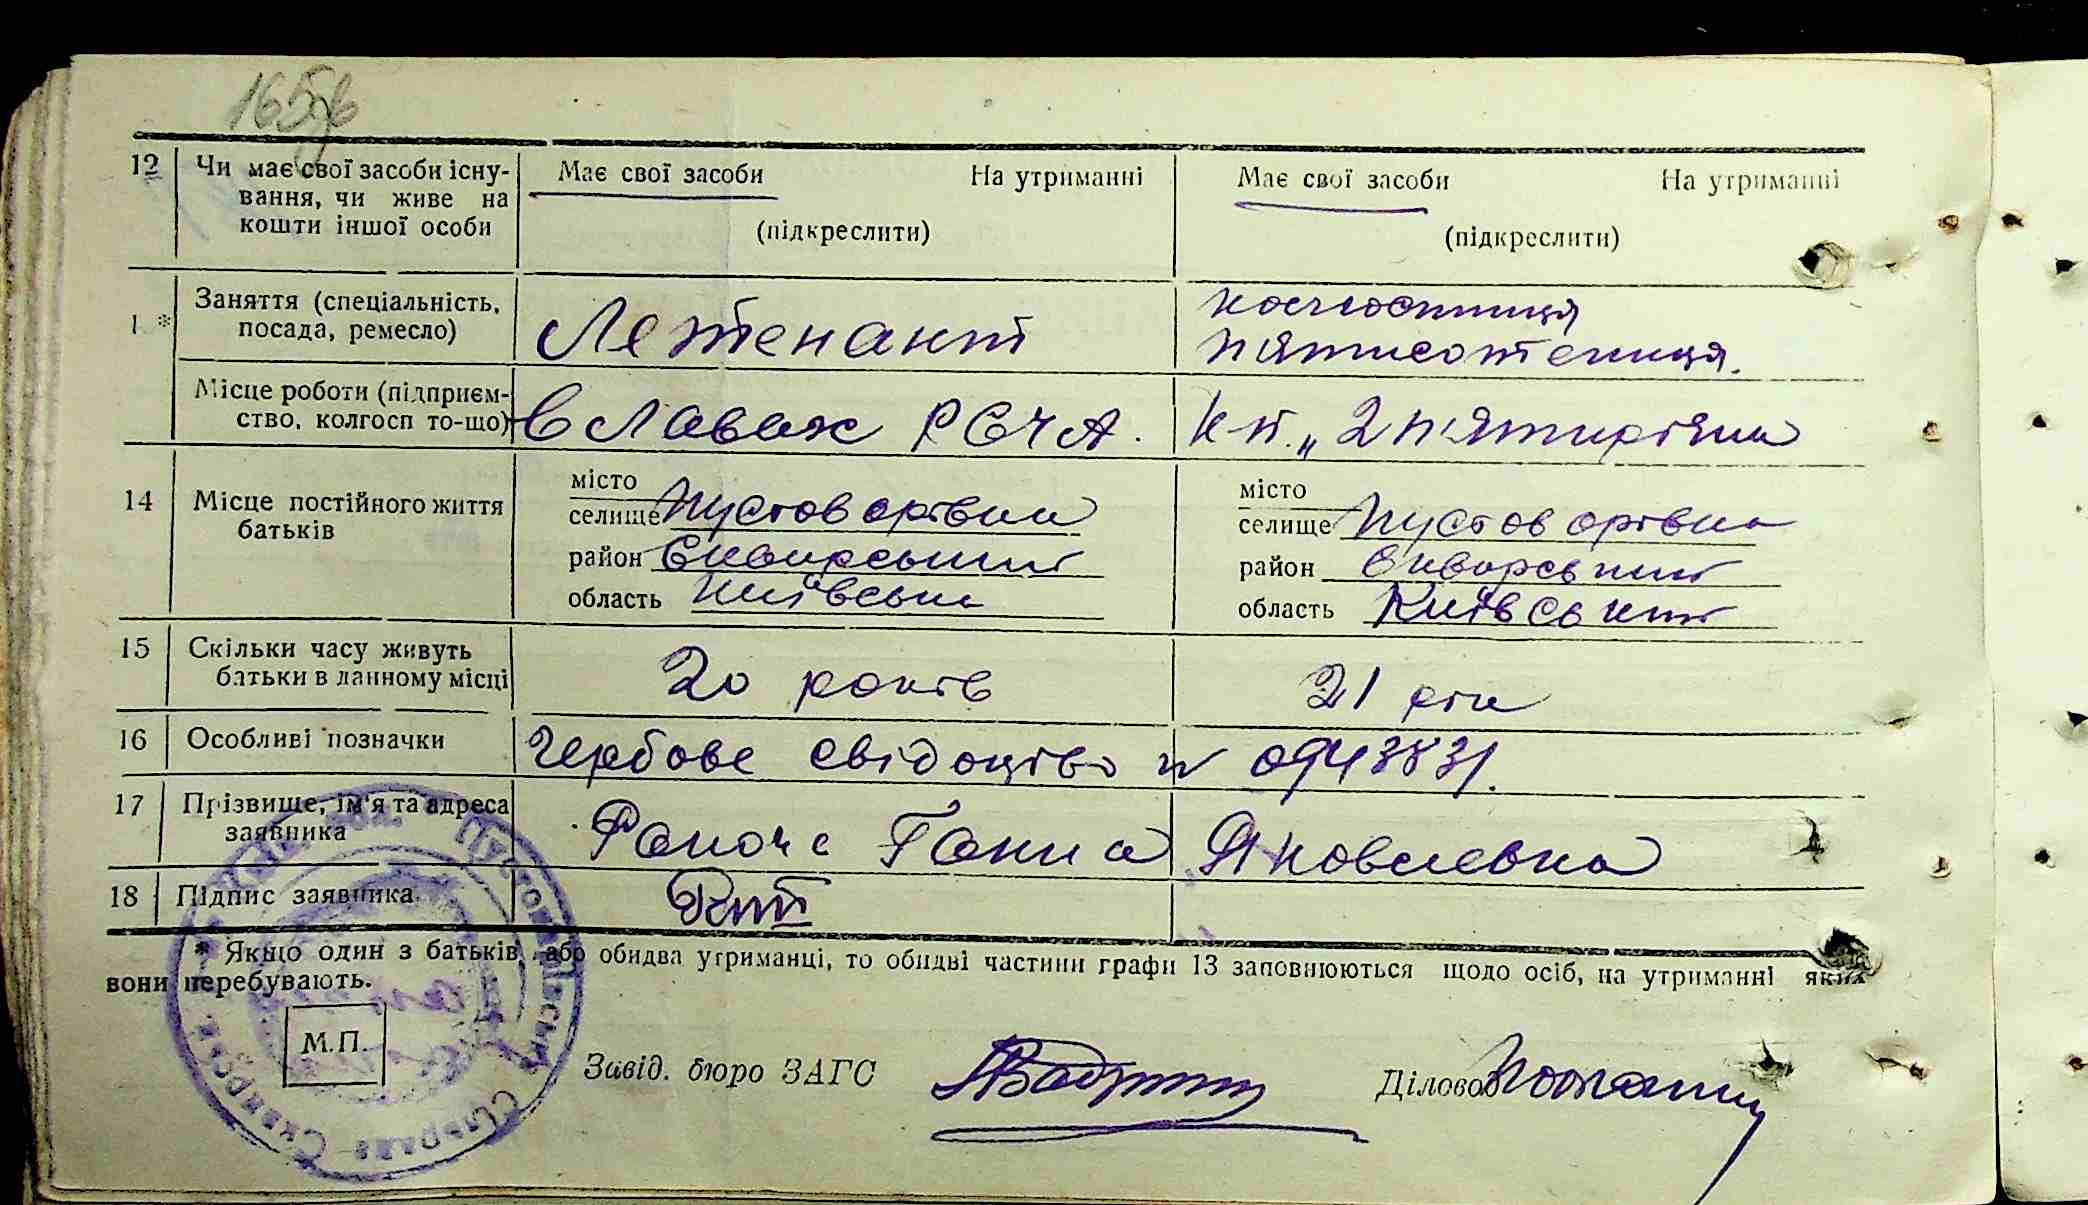 165зв
12 Чи має свої засоби існу-
вання, чи живе на
кошти іншої особи
Має свої засоби На утриманні
(підкреслити)
Має свої засоби На утриманні
(підкреслити)
1 * Заняття (спеціальність,
посада, ремесло)
Летенант
колгоспниця
пятисотениця.
Місце роботи (підприєм-
ство, колгосп то-що)
в лавах РСЧА.
к-п. „2 п'ятирічка
14 Місце постійного життя
батьків
місто
селище Пустоварівка
район Сквирський
область Київська
місто
селище Пустоварівка
район Сквирський
область Київський
15 Скільки часу живуть
батьки в данному місці
20 років
21 рік
16 Особливі позначки
Гербове свідоцтво № 0943831.
17 Прізвище, ім'я та адреса
заявника
Ганна Яковлевна
18 Підпис заявника.
* Якщо один з батьків, або обидва утриманці, то обидві частини графи 13 заповнюються щодо осіб, на утриманні яких
вони перебувають.
М.П.
Завід. бюро ЗАГС
Діловод